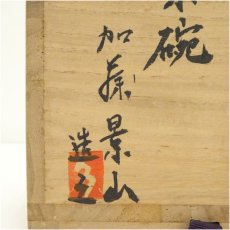 茶碗
加藤景山
造